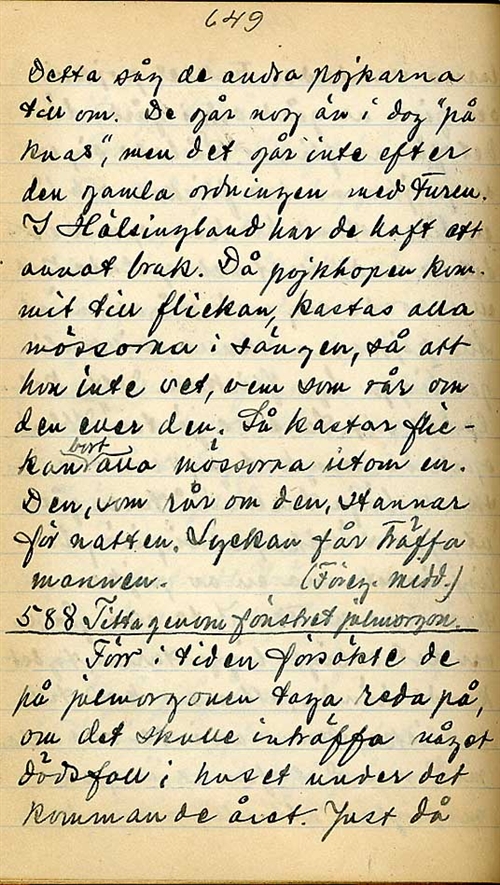 649
Detta såg de andra pojkarna
till om. De går nog än i dag "på
knas", men det går inte efter
den gamla ordningen med turen.
I Hälsingland har de haft ett
annat bruk. Då pojkhopen kom-
mit till flickan, kastas alla
mössorna i sängen, så att
hon inte vet, vem som rår om
den eller den. Så kastar flic-
kan bort alla mössorna utom en.
Den, som rår om den, stannar
för natten. Lyckan får träffa
mannen. (Föreg. medd.)
588 Titta genom fönstret julmorgon.
Förr i tiden försökte de
på julmorgonen taga reda på,
om det skulle inträffa något
dödsfall i huset under det
kommande året. Just då